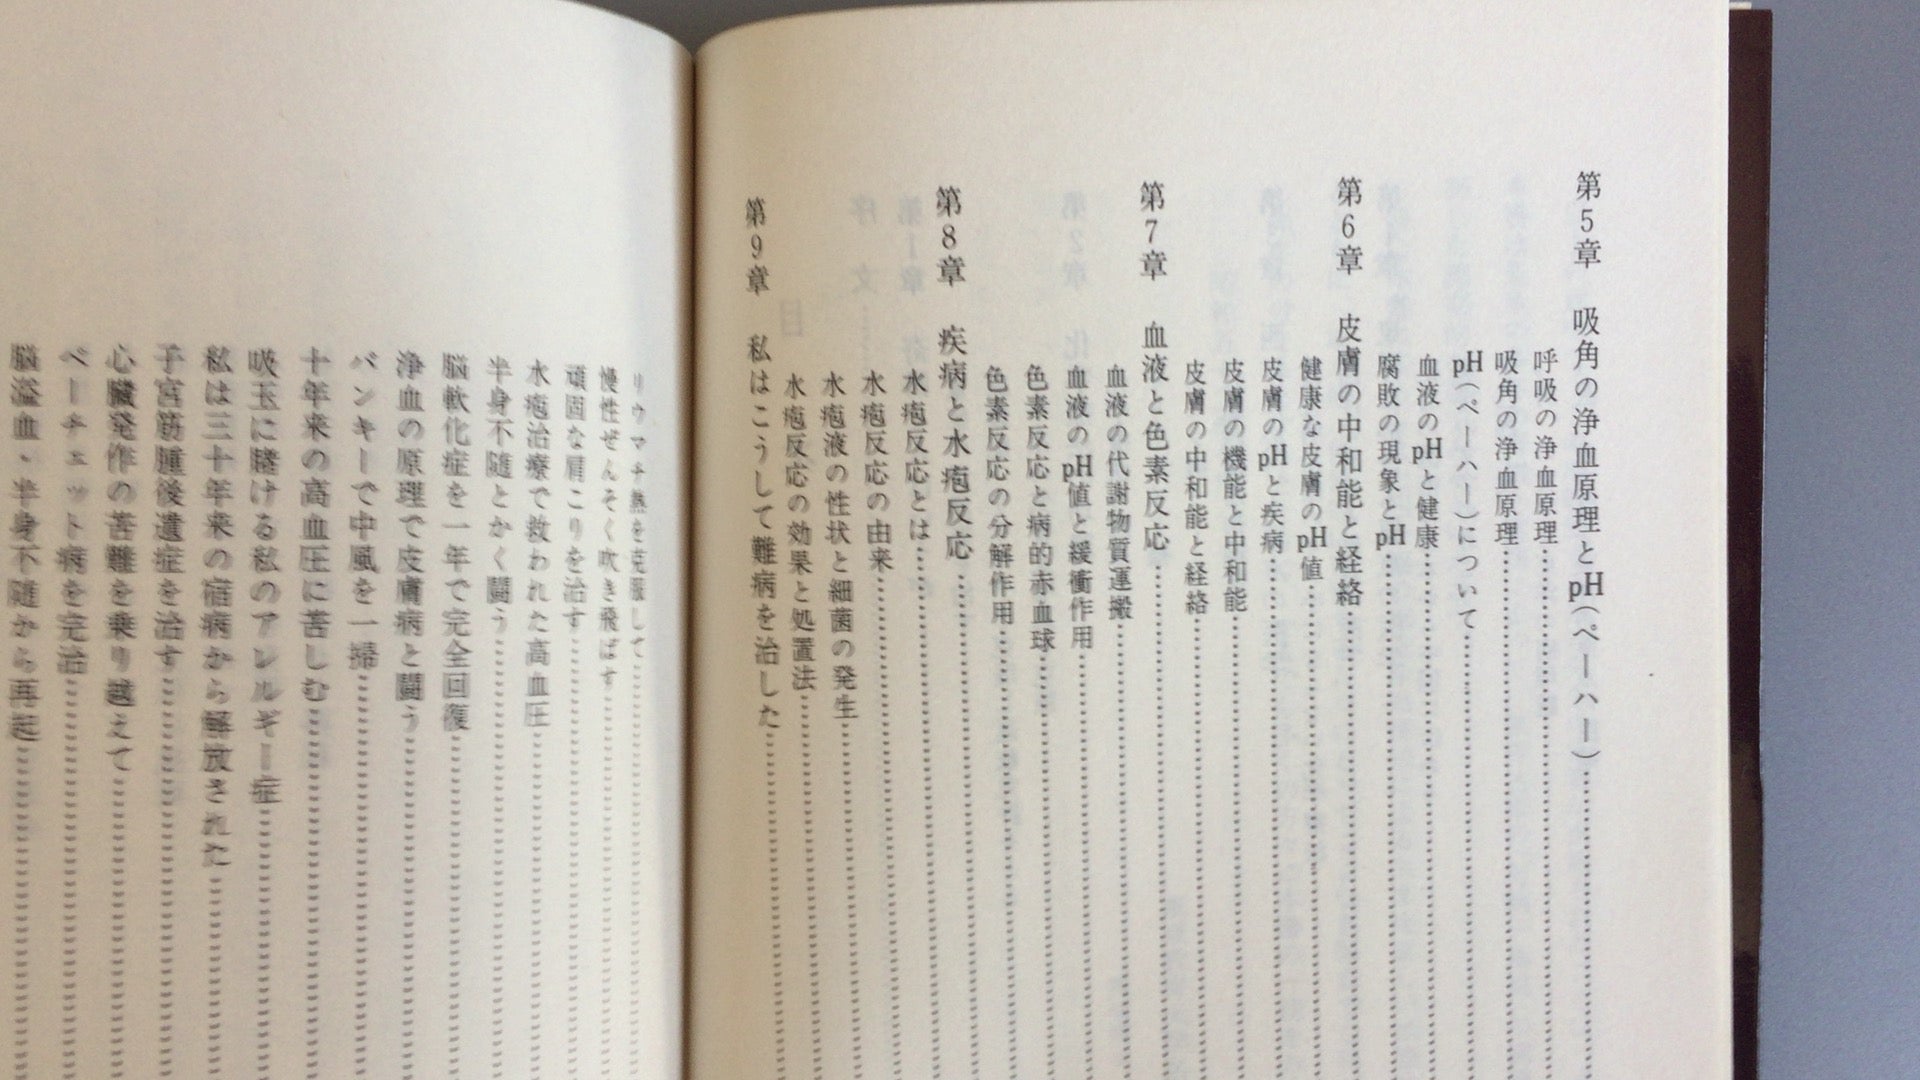 第5章　吸角の浄血原理とpH（ペーハー）……
呼吸の浄血原理……
吸角の浄血原理……
pH（ペーハー）について……
血液のpHと健康……
腐敗の現象とpH……
第6章　皮膚の中和能と経絡……
健康な皮膚のpH値……
皮膚のpHと疾病……
皮膚の機能と中和能……
皮膚の中和能と経絡……
第7章　血液と色素反応……
血液の代謝物質運搬……
血液のpH値と緩衝作用……
色素反応と病的赤血球……
色素反応の分解作用……
第8章　疾病と水疱反応……
水疱反応とは……
水疱反応の由来……
水疱液の性状と細菌の発生……
水疱反応の効果と処置法……
第9章　私はこうして難病を治した……
リウマチ熱を克服して……
慢性ぜんそく吹き飛ばす……
頑固な肩こりを治す……
水疱治療で救われた高血圧……
半身不随とかく闘う……
脳軟化症を一年で完全回復……
浄血の原理で皮膚病と闘う……
バンキーで中風を一掃……
十年来の高血圧に苦しむ……
吸玉に賭ける私のアレルギー症……
私は三十年来の宿病から解放された……
子宮筋腫後遺症を治す……
心臓発作の苦難を乗り越えて……
ベーチェット病を完治……
脳溢血・半身不随から再起……